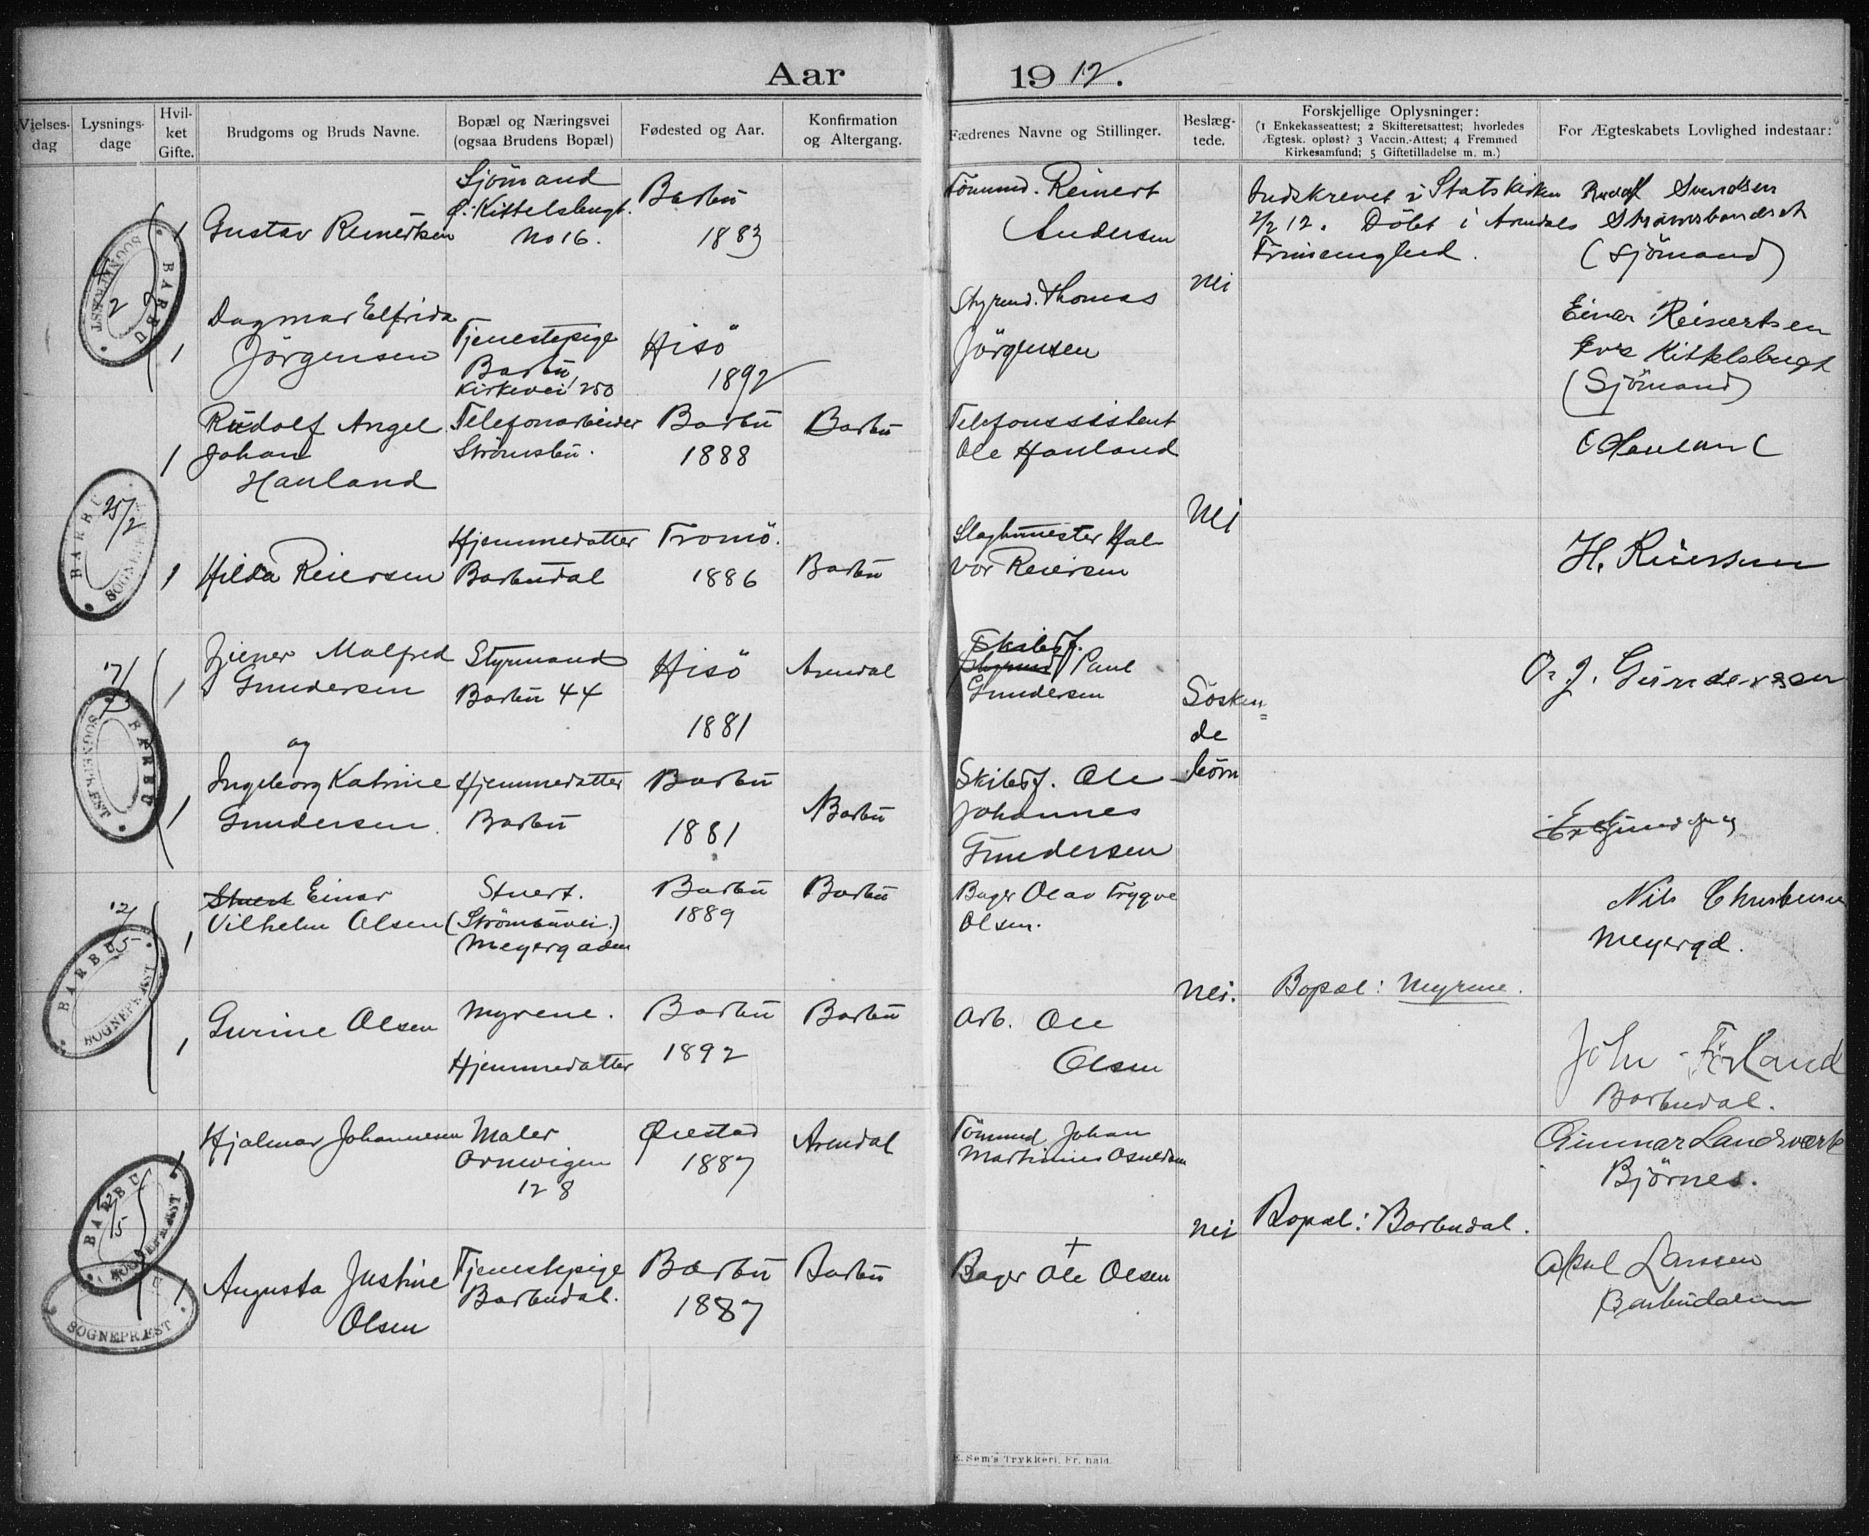 Aar 1912.
Vielses-dag
Lysnings-dage
Hvil-ket Gifte.
Brudgoms og Bruds Navne.
Bopæl og Næringsvei
(ogsaa Brudens Bopæl)
Fødested og Aar.
Konfirmation
og Altergang.
Fædrenes Navne og Stillinger.
Beslæg-tede.
Forskjellige Oplysninger:
(1 Enkekasseattest; 2 Skifteretsattest; hvorledes
Ægtesk. opløst? 3 Vaccin.-Attest; 4 Fremmed
Kirkesamfund; 5 Giftetilladelse m. m.)
For Ægteskabets Lovlighed indestaar:
BARBU SOGNEPRÆST
1
Gustav Reinertsen
Sjömand
Kittelsbugt.
No 16.
Barbu
1883
Tömmd. Reinert
Andersen
Indskrevet i Statskirken
2/2 12. Döbt i Arendals
Frimenighed.
Rudolf Svendsen
Strømsbuneset
(Sjömand)
1
Dagmar Elfrida
Jörgensen
Tjenestepige
Barbu
Kirkevei 250
Hisö
1892
Styrmd. Thomas
Jörgensen
Nei
Einar Reinertsen
Kittelsbugt
(Sjömand)
BARBU SOGNEPRÆST
25/2
1
Rudolf Angel
Johan
Hauland
Telefonarbeider
Strömsbu.
Barbu
1888
Barbu
Telefonassistent
Ole Hauland
O Hauland
1
Hilda Reiersen
Hjemmedatter
Barbudal
Tromö.
1886
Barbu
Slagtmester Hal-
vor Reiersen
Nei
H. Reiersen
17/3
BARBU SOGNEPRÆST
1
Malfred
Gundersen
Styrmand
Barbu 44
Hisö
1881
Arendal
Skibsf.
Styrmd Paul
Gundersen
Sösken=
de
börn
O. J. Gundersen
og
1
Ingeborg Katrine
Gundersen.
Hjemmedatter
Barbu
Barbu
1881
Barbu
Skibsf. Ole
Johannes
Gundersen
12/5
BARBU SOGNEPRÆST
1
Stuert Einar
Vilhelm Olsen
Stuert.
(Strömbuvei.)
Meyergaden
Barbu
1889
Barbu
Bager Olav Trygve
Olsen.
Nils Christensen
Meyergd.
1
Gurine Olsen
Myrene.
Hjemmedatter
Barbu
1892
Barbu
Arb. Ole
Olsen
Nei.
Bopæl: Myrene.
John Förland
Barbudal.
BARBU SOGNEPRÆST
1
Hjalmar Johannesen
Maler
Arnevigen
128
Øiestad
1887
Arendal
Tömmd Johan
Gunnar Landsværk
Bjørnes.
SOGNEPRÆST
1
Augusta Justine
Olsen
Tjenestepige
Barbudal.
Barbu
1887
Barbu
+
Bager Ole Olsen
Nei
Bopæl: Barbudal.
Aksel Larssen
Barbudalen
E. Sem's Trykkeri, Fr. hald.